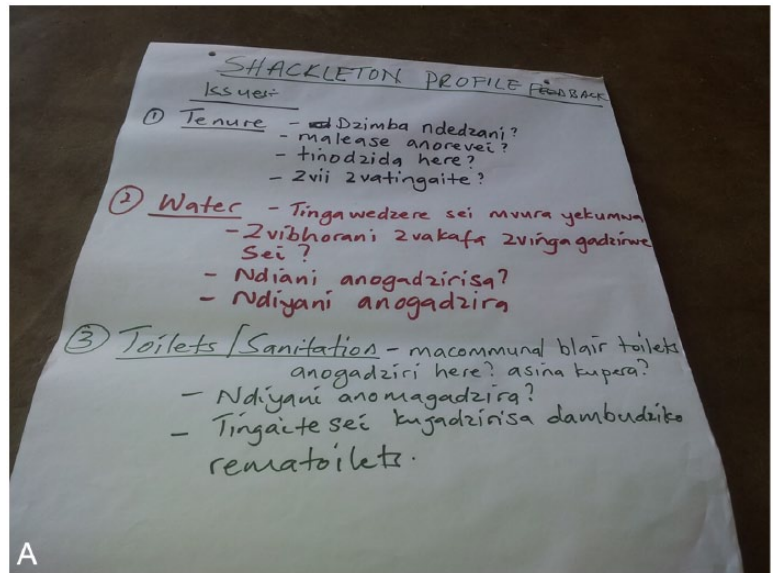 SHACKLETON PROFILE FEEDBACK
Issues:-
① Tenure - Dzimba ndedzani?
- malease anorevei?
- tinodzida here?
- Zvii zvatingaite?
② Water - Tingawedzere sei mvura yekumwa
- Zvibhorani zvakafa zvingagadzirwe
sei?
- Ndiani anogadzirisa?
- Ndiyani anogadzira
③ Toilets/Sanitation - macommunal blair toilets
anogadziri here? asina kupera?
- Ndiyani anomagadzira?
- Tingaite sei kugadzirisa dambudziko
rematoilets.
A